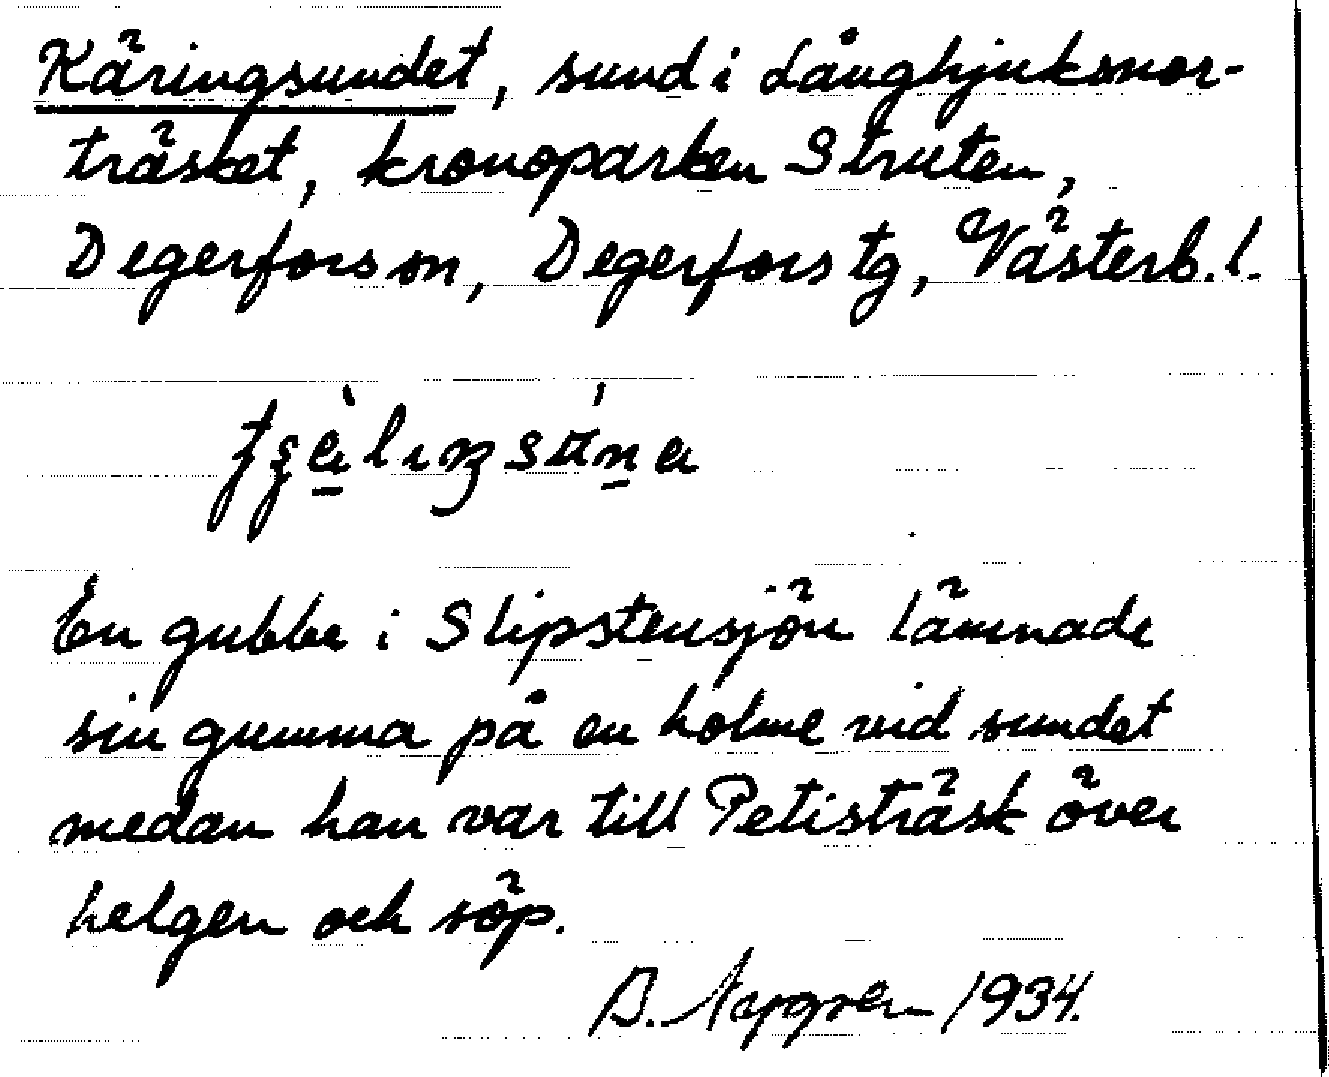 Käringsundet, sund i Långhjuksmor-
träsket, kronoparken Struten,
Degerforsson, Degerfors tg, Västerb. l.
En gubbe i Slipstensjön lämnade
sin gumma på en holme vid sundet
medan han var till Petisträsk över
helgen och söp.
B. 1934.